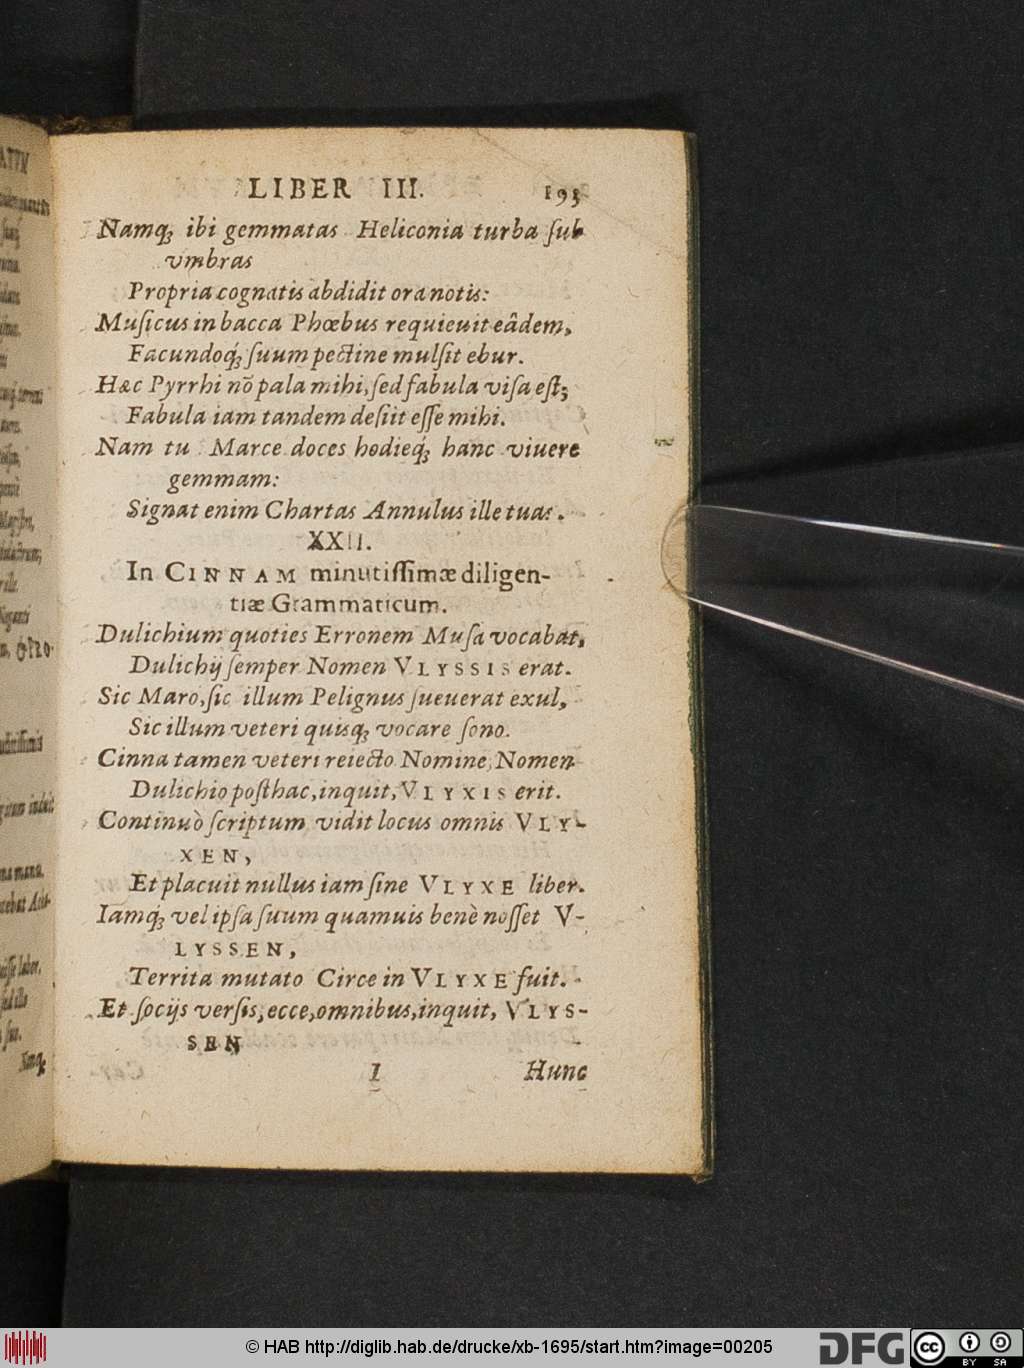 LIBER III. 193
Namq; ibi gemmatas Heliconia turba ſub
vmbras
Propria cognatis abdidit ora notis:
Muſicus in bacca Phœbus requieuit eâdem,
Facundoq́; ſuum pectine mulſit ebur.
Hæc Pyrrhi nõ pala mihi, ſed fabula viſa eſt;
Fabula iam tandem deſiit eſſe mihi.
Nam tu Marce doces hodieq́; hanc viuere
gemmam:
Signat enim Chartas Annulus ille tuas.
XXII.
In CINNAM minutiſſimæ diligen-
tiæ Grammaticum.
Dulichium quoties Erronem Muſa vocabat,
Dulichij ſemper Nomen VLYSSIS erat.
Sic Maro, ſic illum Pelignus ſueuerat exul,
Sic illum veteri quisq; vocare ſono.
Cinna tamen veteri reiecto Nomine, Nomen
Dulichio poſthac, inquit, VLYXIS erit.
Continuò ſcriptum vidit locus omnis VLY-
XEN,
Et placuit nullus iam ſine VLYXE liber.
Iamq́; vel ipſa ſuum quamuis benè noſſet V-
LYSSEN,
Territa mutato Circe in VLYXE fuit.
Et ſocijs verſis, ecce, omnibus, inquit, VLYS-
SEN
I Hunc
© HAB http://diglib.hab.de/drucke/xb-1695/start.htm?image=00205
DFG cc BY SA